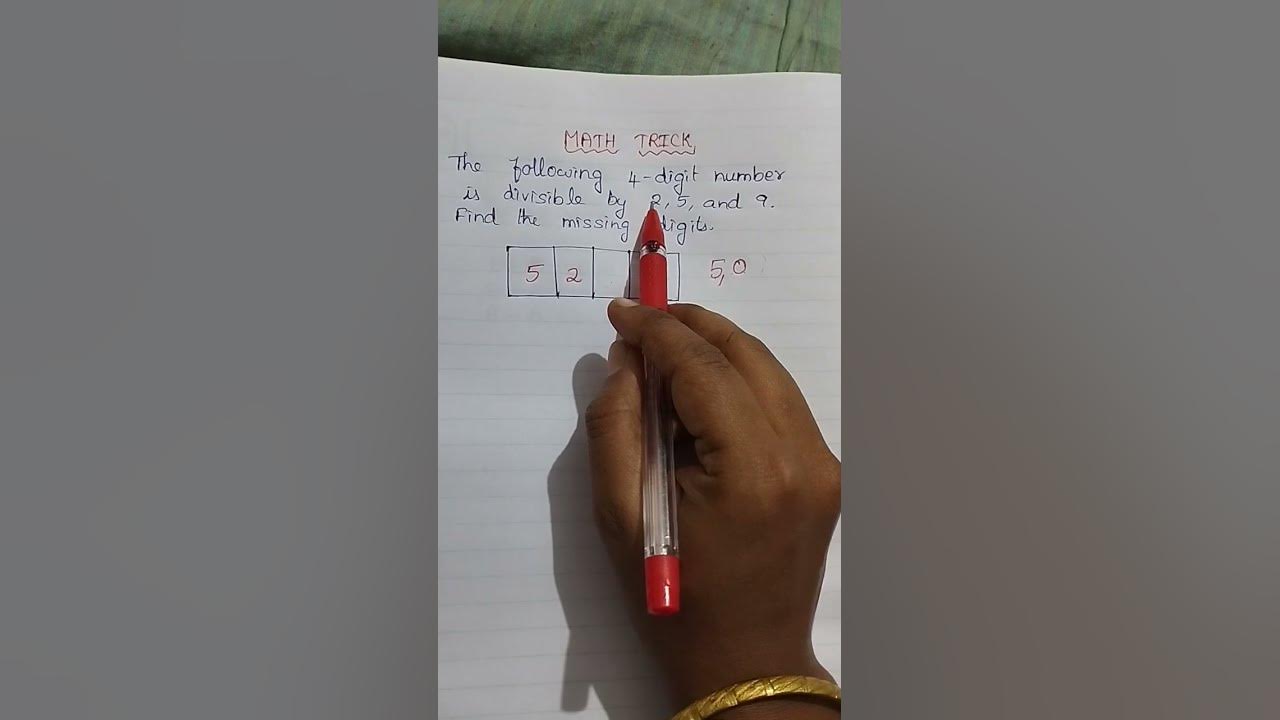 MATH TRICK
The following 4-digit number
is divisible by 2, 5, and 9.
Find the missing digits.
5 2 5,0